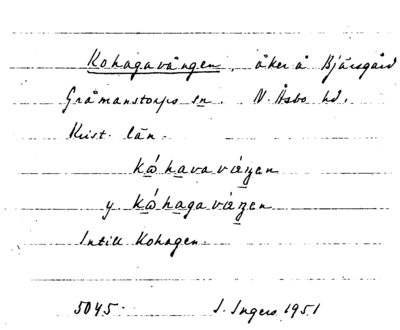 Kohagavången, åker å Bjärsgård
Gråmanstorps sn. N. Åsbo hd.
Krist. län.
kǿhavaváŋen
y kǿhagaváŋen
Intill Kohagen.
5045. I. Ingers 1951